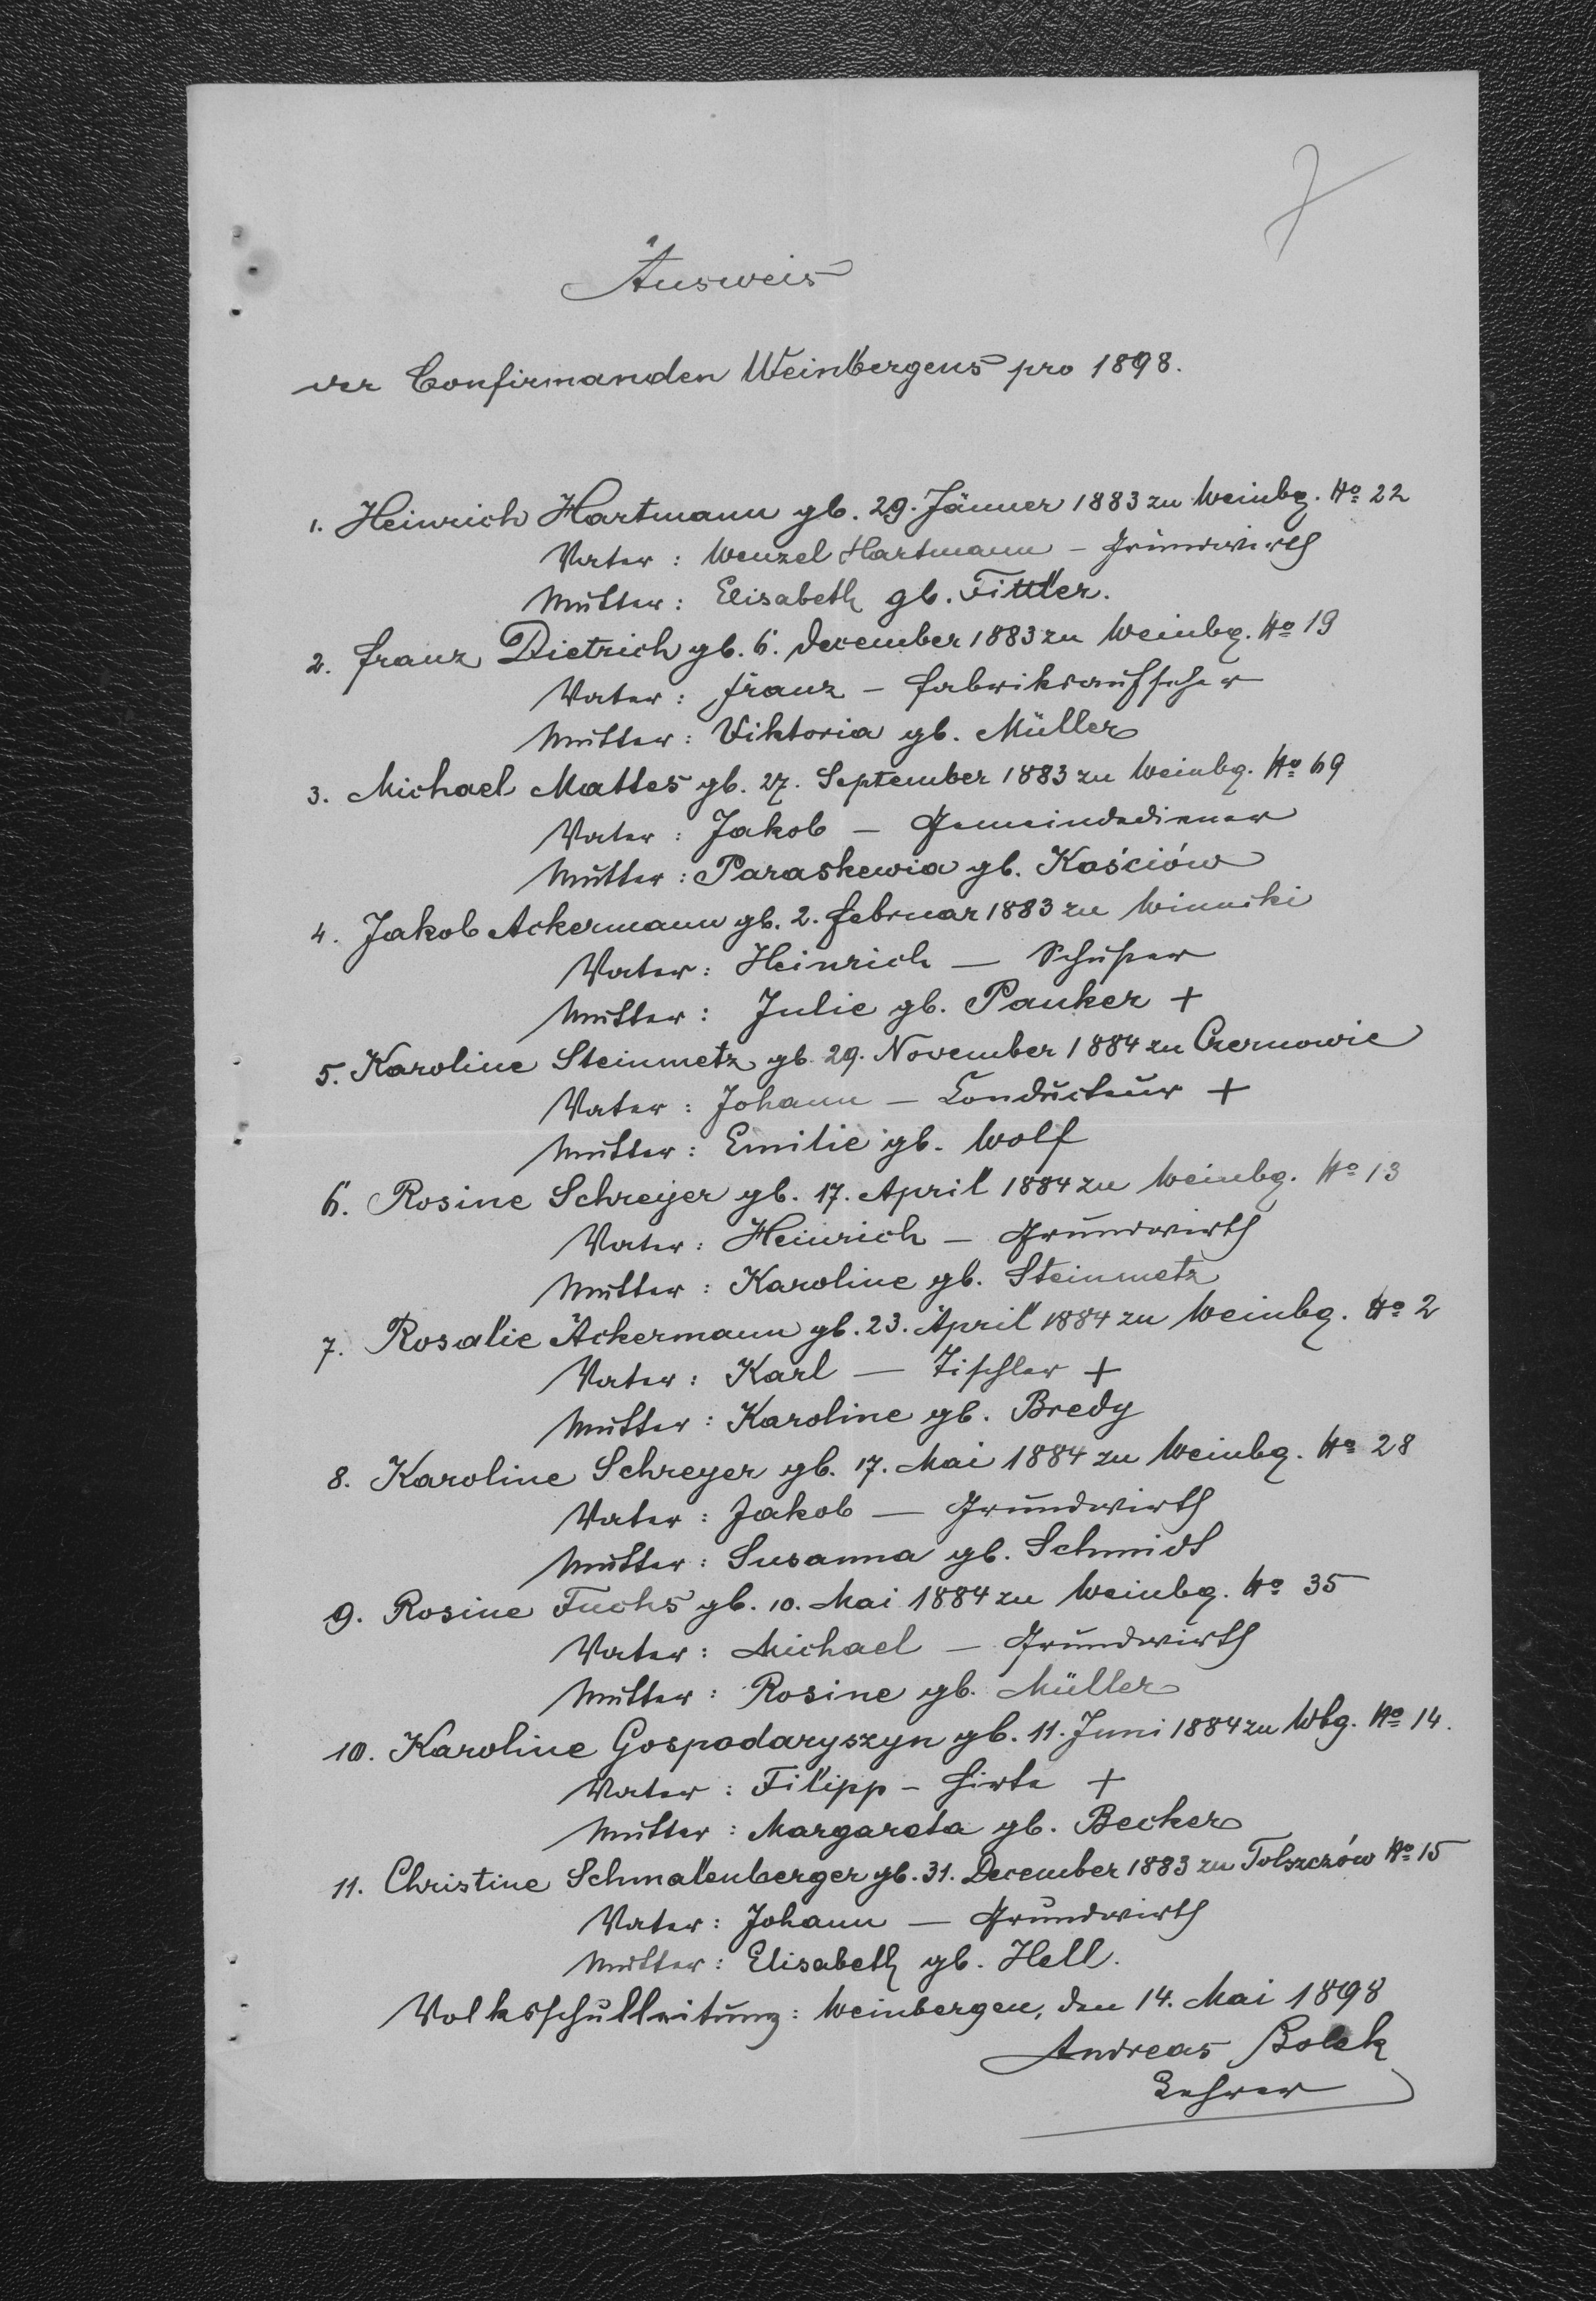 7
Ausweis
der Confirmanden Weinbergens pro 1898.
1. Heinrich Hartmann gb. 29. Jänner 1883 zu Weinbg. No 22
Vater: Wenzel Hartmann – Grundwirth
Mutter: Elisabeth gb. Fittler.
2. Franz Dietrich gb. 6. December 1883 zu Weinbg. No 19
Vater: Franz – Fabriksaufseher
Mutter: Viktoria gb. Müller
3. Michael Mattes gb. 27. September 1883 zu Weinbg. No 69
Vater: Jakob – Gemeindediener
Mutter: Paraskewia gb. Kościów
4. Jakob Ackermann gb. 2. Februar 1883 zu Winniki
Vater: Heinrich – Schuster
Mutter: Julie gb. Pauker +
5. Karoline Steinmetz gb. 29. November 1884 zu Czernowic
Vater: Johann – Conducteur +
Mutter: Emilie gb. Wolf
6. Rosine Schreyer gb. 17. April 1884 zu Weinbg. No 13
Vater: Heinrich – Grundwirth
Mutter: Karoline gb. Steinmetz
7. Rosalie Ackermann gb. 23. April 1884 zu Weinbg. No 2
Vater: Karl – Tischler +
Mutter: Karoline gb. Bredy
8. Karoline Schreyer gb. 17. Mai 1884 zu Weinbg. No 28
Vater: Jakob – Grundwirth
Mutter: Susanna gb. Schmidt
9. Rosine Fuchs gb. 10. Mai 1884 zu Weinbg. No 35
Vater: Michael – Grundwirth
Mutter: Rosine gb. Müller
10. Karoline Gospodaryszyn gb. 11. Juni 1884 zu Wbg. No 14.
Vater: Filipp – Hirte +
Mutter: Margareta gb. Becker
11. Christine Schmalenberger gb. 31. December 1883 zu Tolszczów No 15
Vater: Johann – Grundwirth
Mutter: Elisabeth gb. Hell.
Volksschulleitung: Weinbergen, den 14. Mai 1898
Andreas Bolek
Lehrer